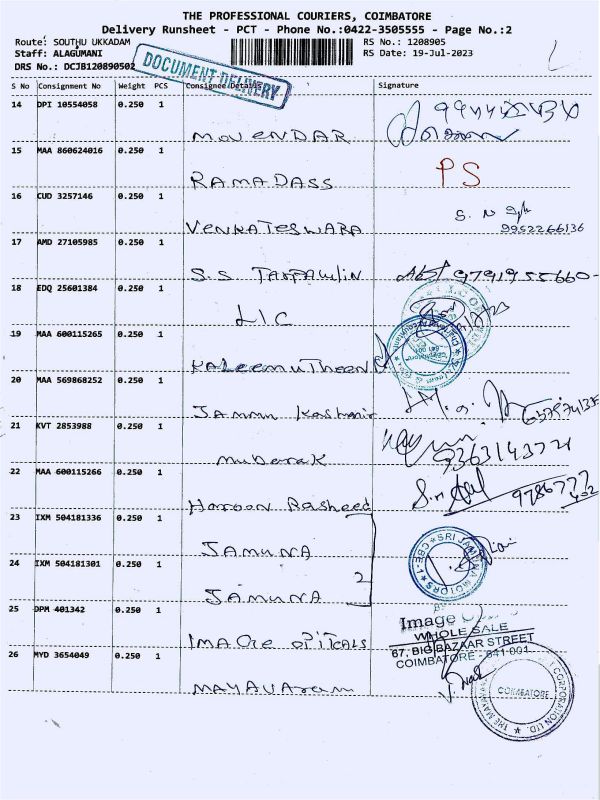 THE PROFESSIONAL COURIERS, COIMBATORE
Delivery Runsheet - PCT - Phone No.:0422-3505555 - Page No.:2
Route: SOUTHU UKKADAM
RS No.: 1208905
Staff: ALAGUMANI
RS Date: 19-Jul-2023
DRS No.: DCJB120890502
DOCUMENT DELIVERY
S No Consignment No Weight PCS Consignee Details Signature
14 DPI 10554058 0.250 1
MOVENDAR
15 MAA 860624016 0.250 1
RAMADASS PS
16 CUD 3257146 0.250 1
VENKATESWARA 9952266136
17 AMD 27105985 0.250 1
S.S TARPAULIN 9791955660-
18 EDQ 25601384 0.250 1
LIC
19 MAA 600115265 0.250 1
KALEEMUTHEEN
20 MAA 569868252 0.250 1
JAMMU Kashmir
21 KVT 2853988 0.250 1
mubarak 9363143721
22 MAA 600115266 0.250 1
Haroon Rasheed
23 IXM 504181336 0.250 1
JAMUNA
SRI JAMUNA MOTORS CBE-1
24 IXM 504181301 0.250 1
JAMUNA 2
25 DPM 401342 0.250 1
IMAGE OPTICALS
Image
WHOLE SALE
67, BIG BAZAAR STREET
COIMBATORE - 641 001
26 MYD 3654049 0.250 1
MAYAVARAM
COIMBATORE